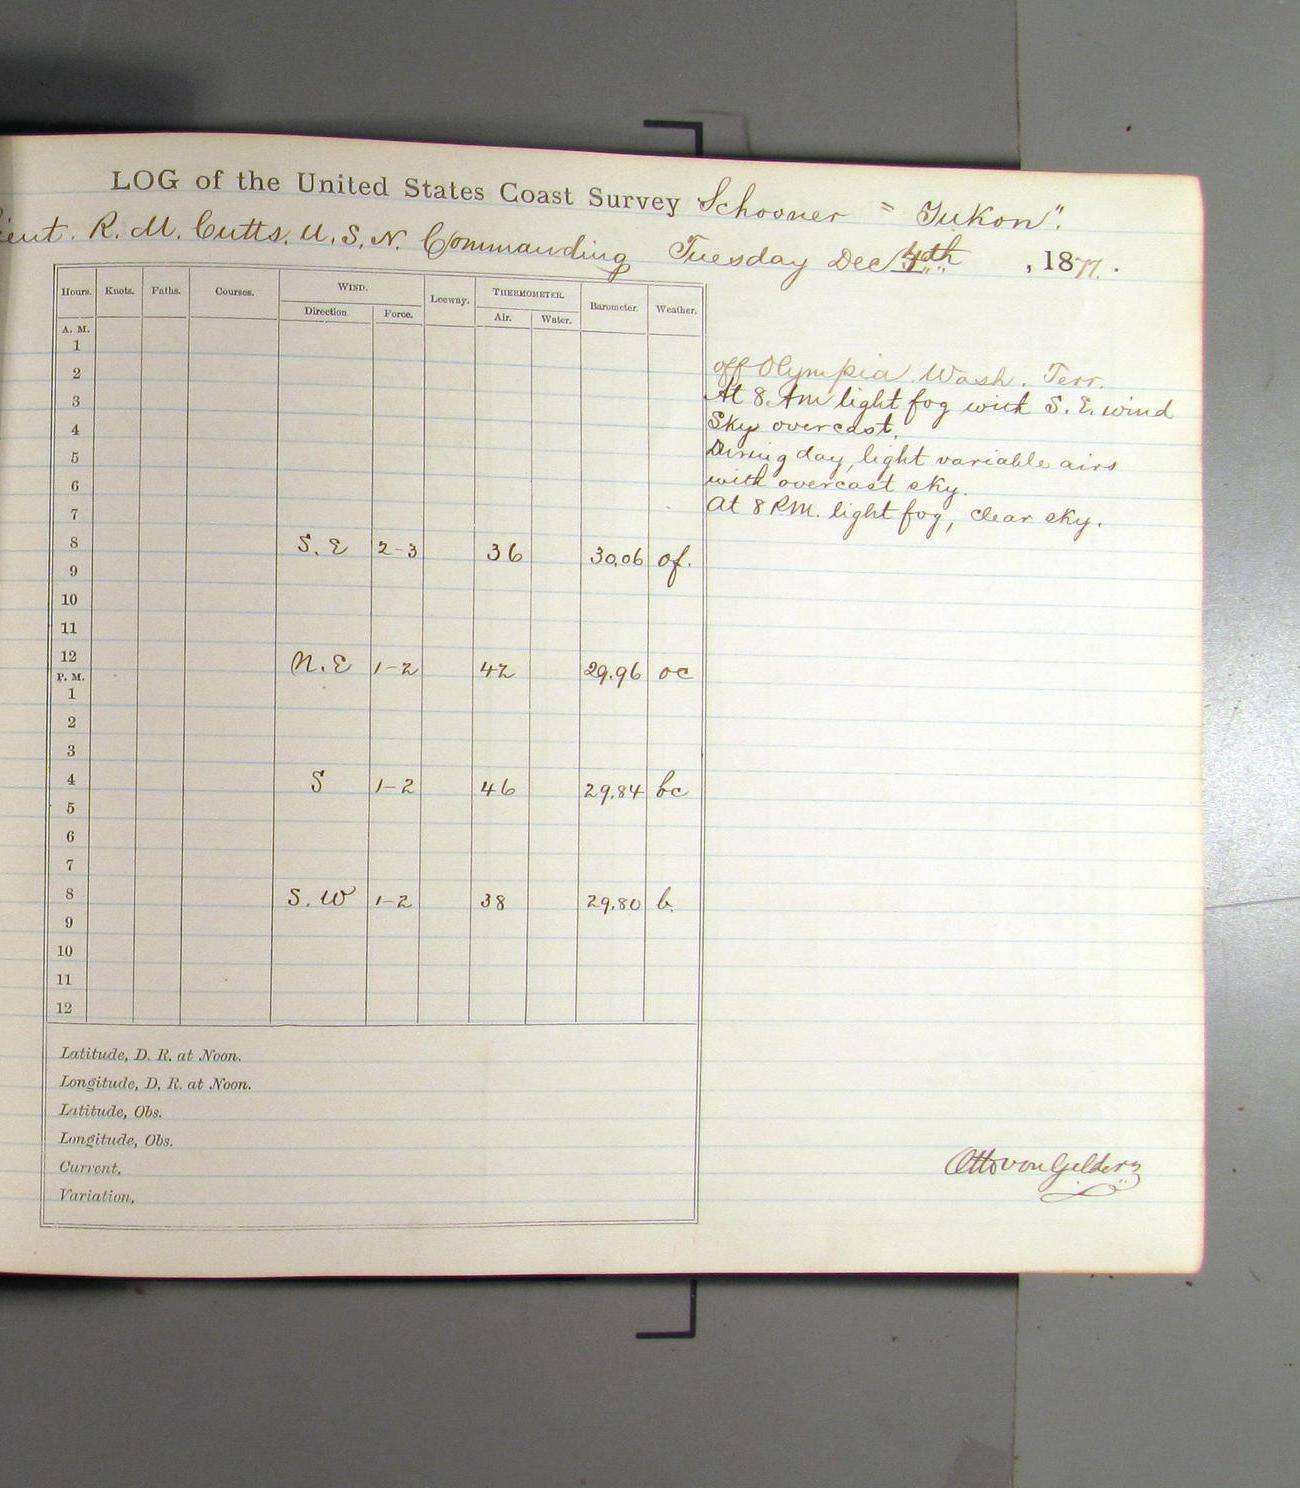 LOG of the United States Coast Survey Schooner " Yukon".
Lieut. R. M. Cutts, U.S.N. Commanding Tuesday Dec 4th , 1877.
Hours. Knots. Faths. Courses. WIND. Leeway. THERMOMETER. Barometer. Weather.
Direction. Force. Air. Water.
A. M.
1
2
3
4
5
6
7
8 S. E 2-3 36 30.06 of.
9
10
11
12 N. E 1-2 42 29.96 oc
P. M.
1
2
3
4 S 1-2 46 29.84 bc
5
6
7
8 S. W 1-2 38 29.80 b.
9
10
11
12
Latitude, D. R. at Noon.
Longitude, D. R. at Noon.
Latitude, Obs.
Longitude, Obs.
Current.
Variation.
off Olympia Wash. Terr.
At 8 Am light fog with S. E. wind
Sky overcast.
During day, light variable airs
with overcast sky.
At 8 P.M. light fog, clear sky.
Otto von Geldern